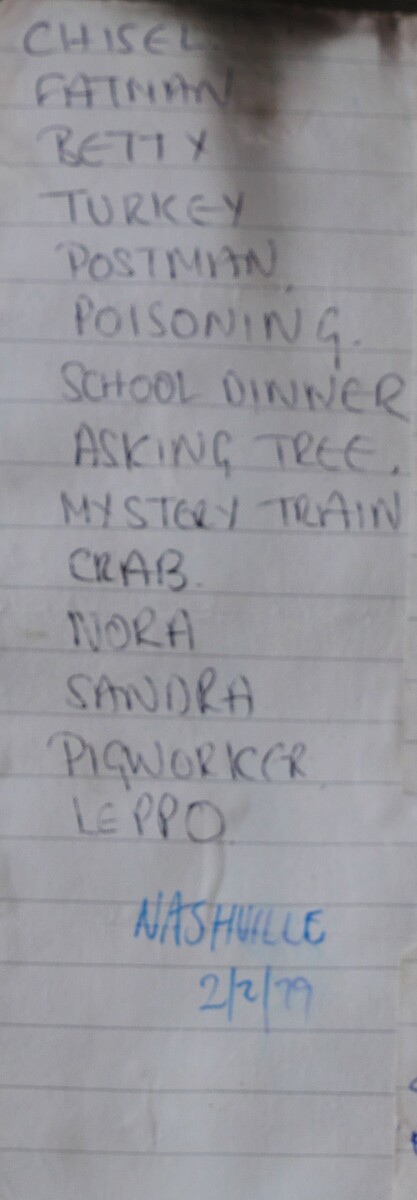 CHISEL.
FATMAN
BETTY
TURKEY
POSTMAN.
POISONING.
SCHOOL DINNER
ASKING TREE.
MYSTERY TRAIN
CRAB.
NORA
SANDRA
PIGWORKER
LEPPO
NASHVILLE
2/2/79